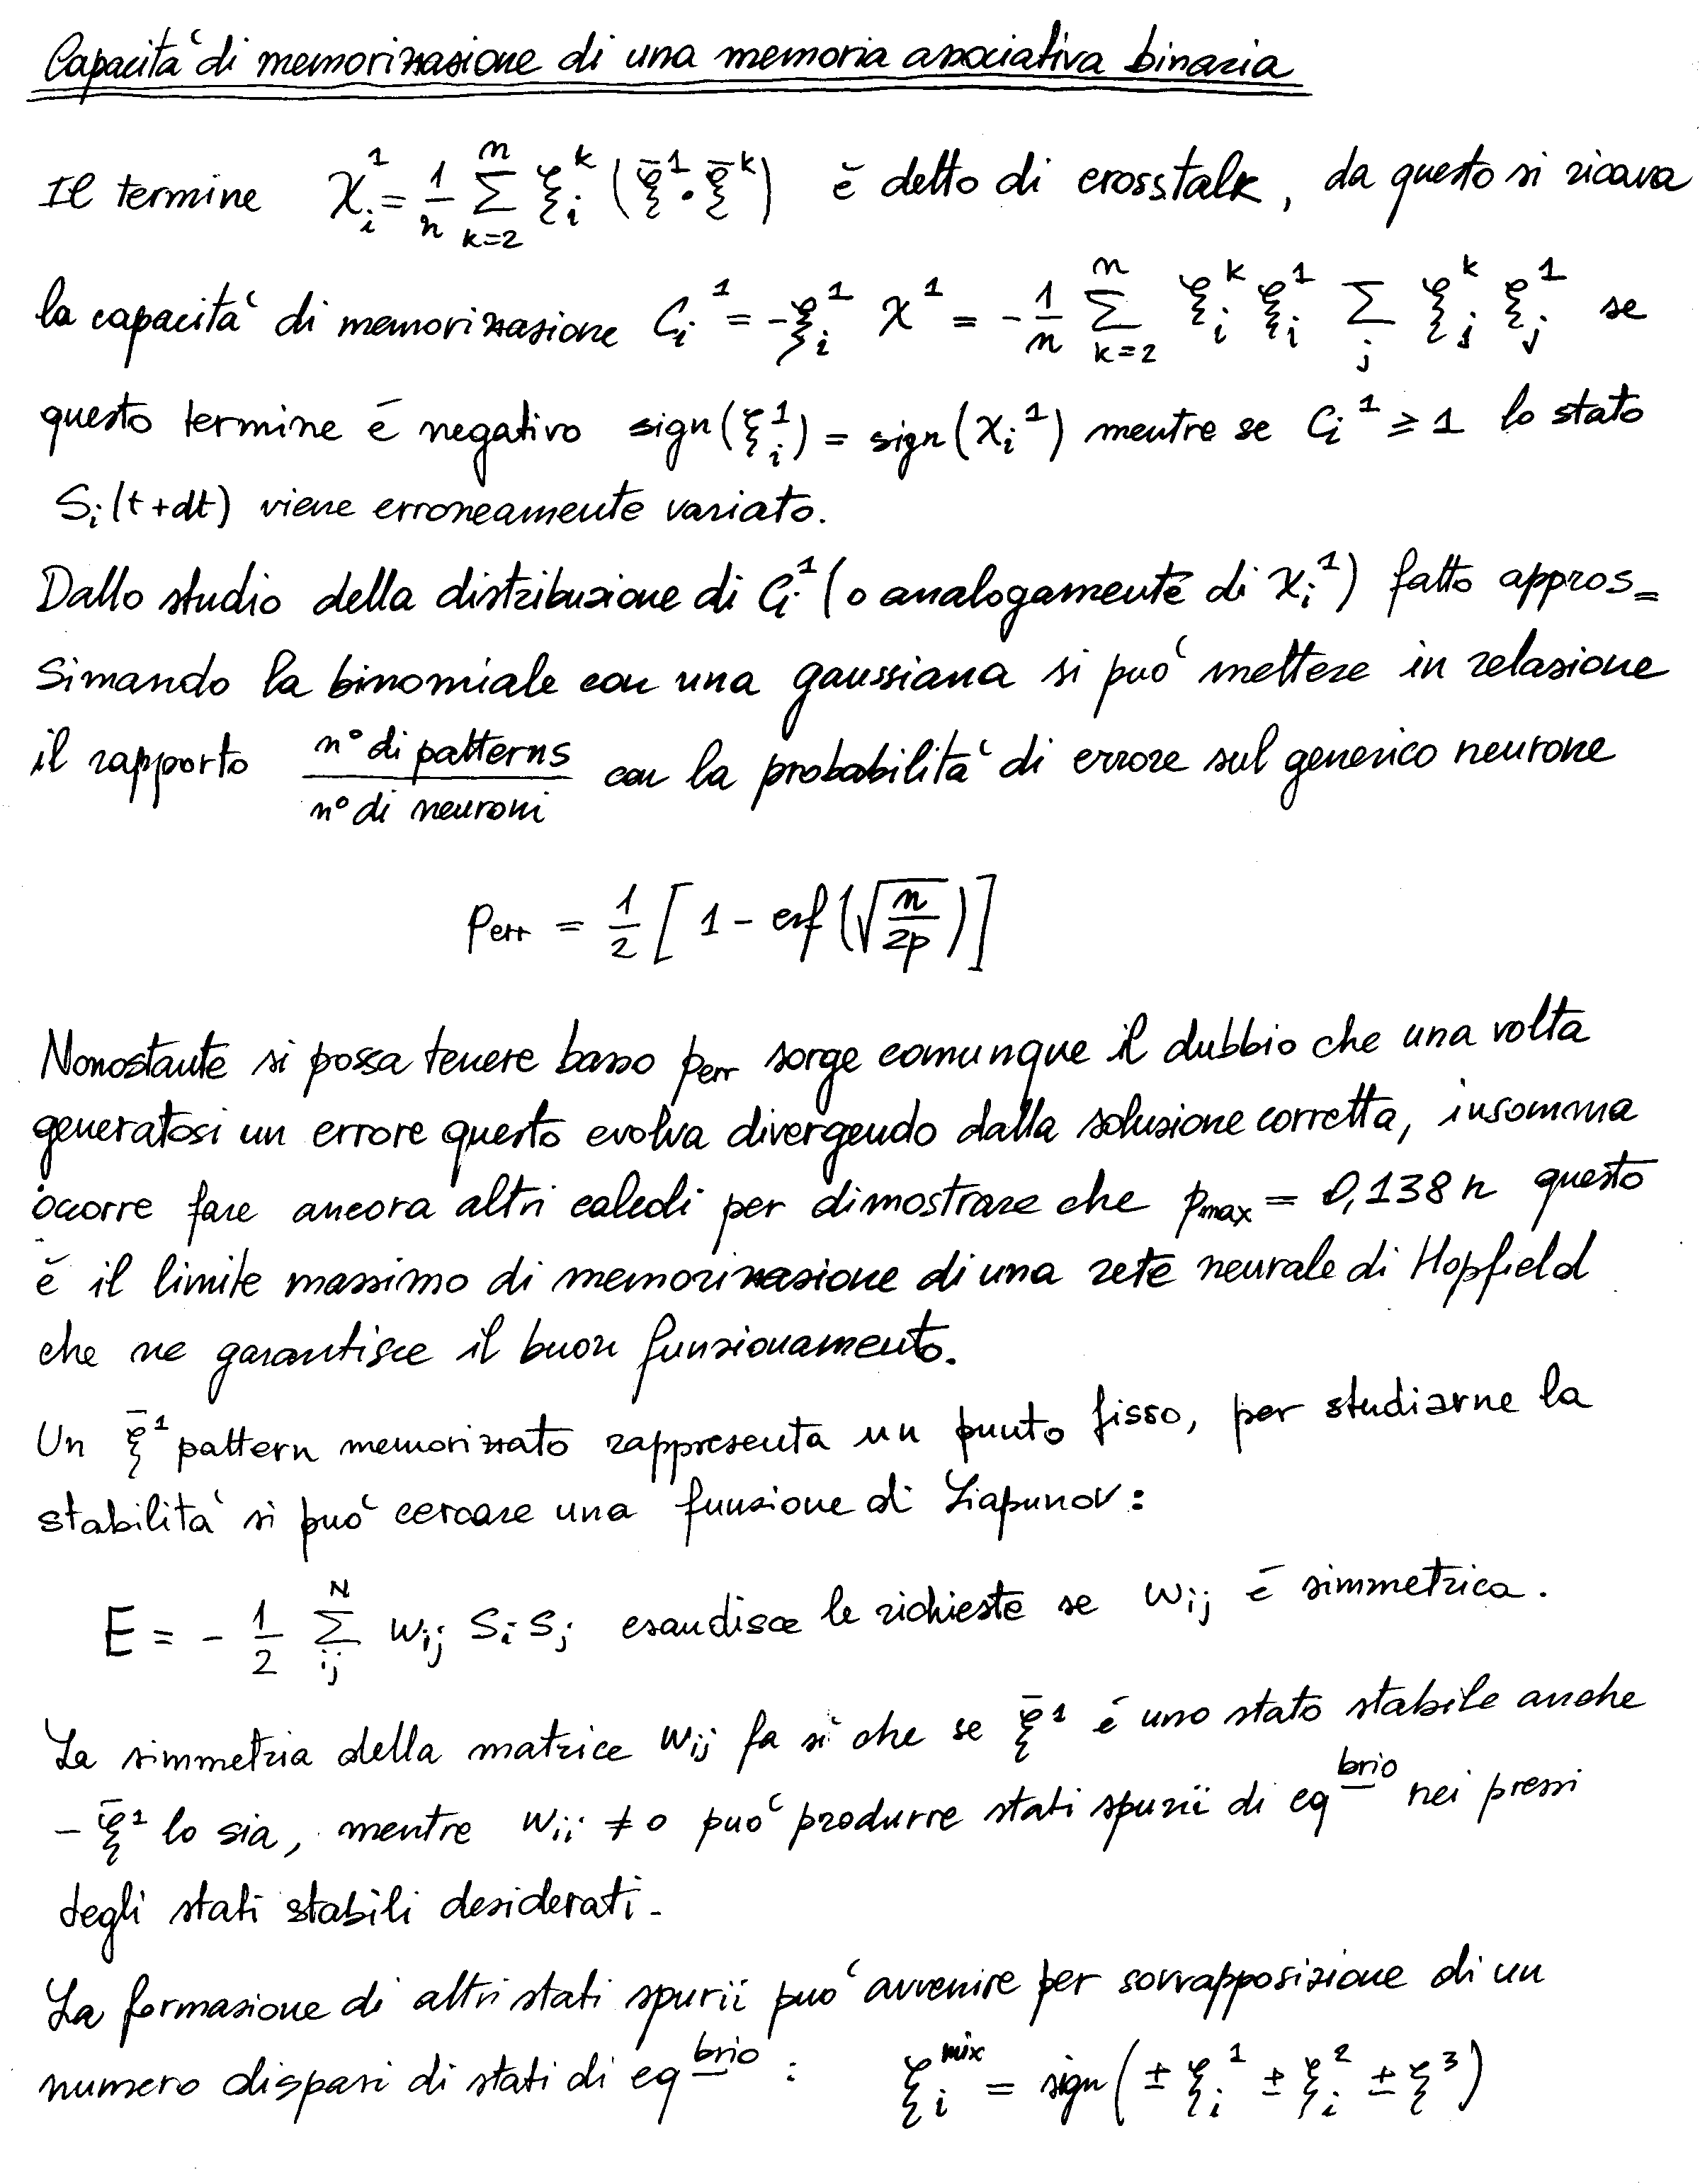 Capacità di memorizzazione di una memoria associativa binaria
Il termine χᵢ¹ = 1/n Σ_{k=2}^{n} ξᵢᵏ (ξ̄¹·ξ̄ᵏ) è detto di crosstalk, da questo si ricava
la capacità di memorizzazione Cᵢ¹ = -ξᵢ¹ χ¹ = - 1/n Σ_{k=2}^{n} ξᵢᵏ ξᵢ¹ Σ_j ξⱼᵏ ξⱼ¹ se
questo termine è negativo sign(ξᵢ¹) = sign(χᵢ¹) mentre se Cᵢ¹ ⩾ 1 lo stato
Sᵢ(t+dt) viene erroneamente variato.
Dallo studio della distribuzione di Cᵢ¹ (o analogamente di χᵢ¹) fatto appros=
simando la binomiale con una gaussiana si può mettere in relazione
il rapporto n° di patterns / n° di neuroni con la probabilità di errore sul generico neurone
Perr = 1/2 [1 - erf(√(n/2p))]
Nonostante si possa tenere basso perr sorge comunque il dubbio che una volta
generatosi un errore questo evolva divergendo dalla soluzione corretta, insomma
occorre fare ancora altri calcoli per dimostrare che pmax = 0,138 n questo
è il limite massimo di memorizzazione di una rete neurale di Hopfield
che ne garantisce il buon funzionamento.
Un ξ̄¹ pattern memorizzato rappresenta un punto fisso, per studiarne la
stabilità si può cercare una funzione di Liapunov:
E = - 1/2 Σ_{ij}^{N} wᵢⱼ Sᵢ Sⱼ esaudisce le richieste se wᵢⱼ è simmetrica.
La simmetria della matrice wᵢⱼ fa sì che se ξ̄¹ è uno stato stabile anche
- ξ̄¹ lo sia, mentre wᵢᵢ ≠ 0 può produrre stati spurii di eq^brio nei pressi
degli stati stabili desiderati.
La formazione di altri stati spurii può avvenire per sovrapposizione di un
numero dispari di stati di eq^brio : ξᵢ^mix = sign(± ξᵢ¹ ± ξᵢ² ± ξ³)